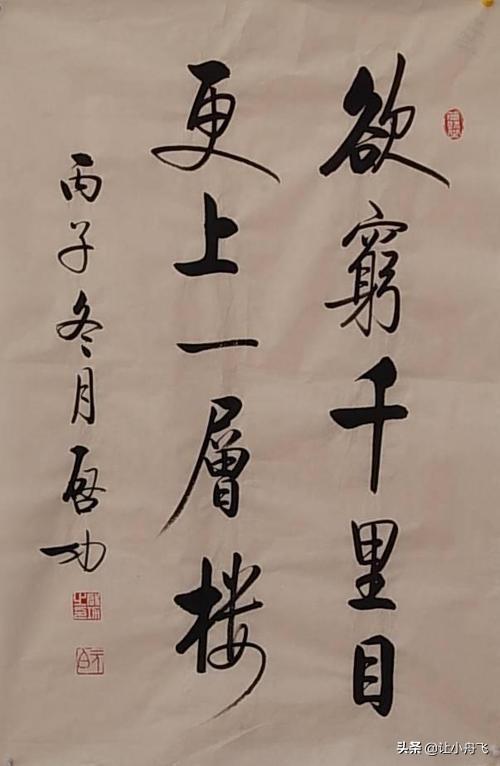 欲窮千里目
更上一層楼
丙子冬月啓功
头条@让小舟飞